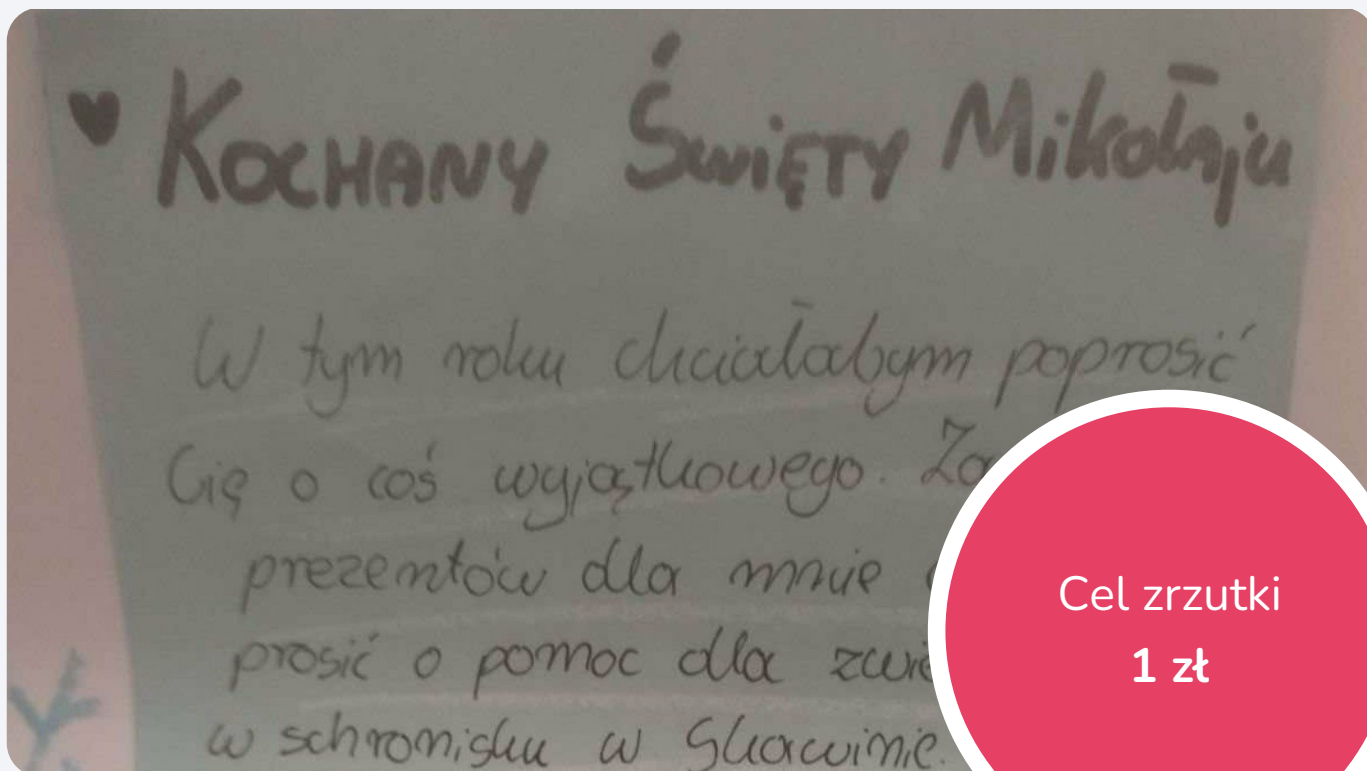 KOCHANY ŚWIĘTY Mikołaju
W tym roku chciałabym poprosić
Cię o coś wyjątkowego.
prezentów dla mnie
prosić o pomoc dla
w schronisku w Skawinie.
Cel zrzutki
1 zł